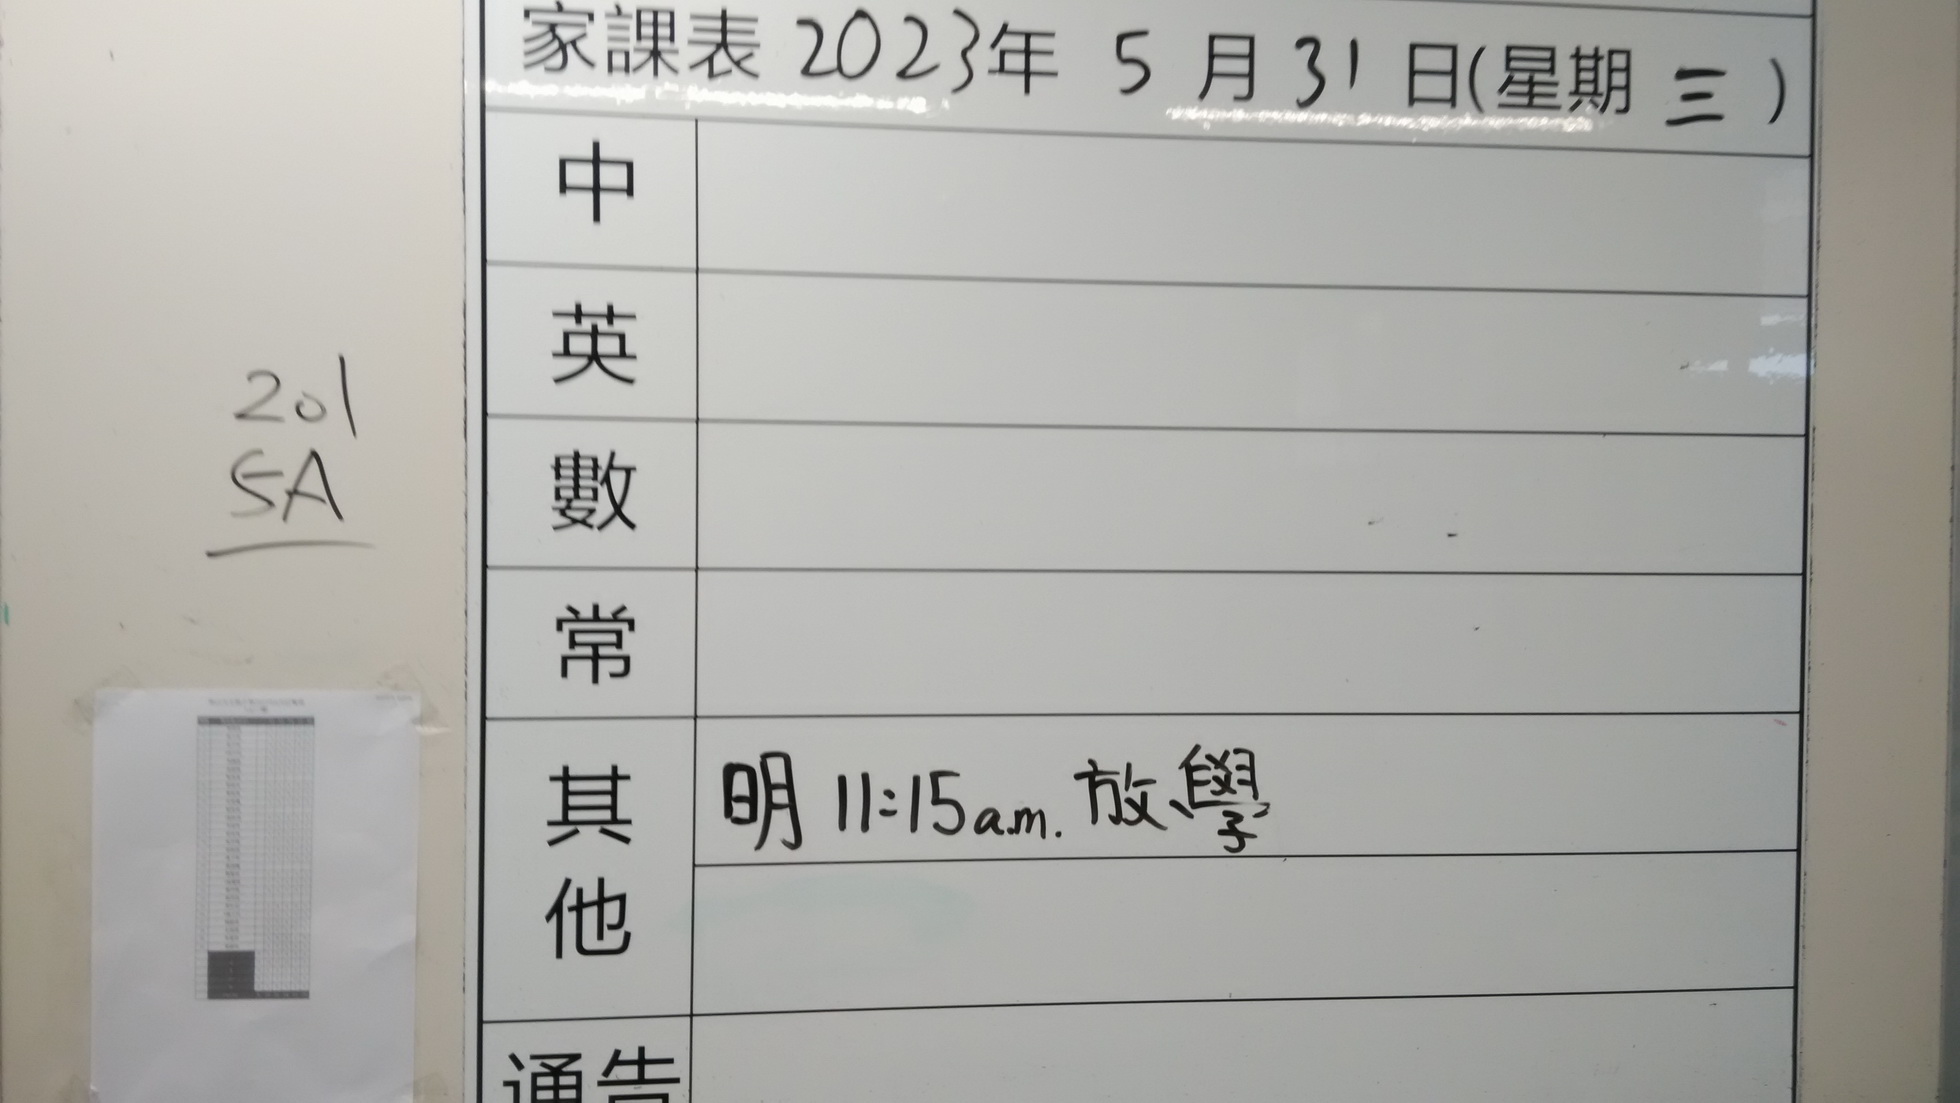 家課表 2023年 5 月 31 日(星期 三 )
中
英
數
常
其他
明 11:15a.m. 放學
通告
201
5A